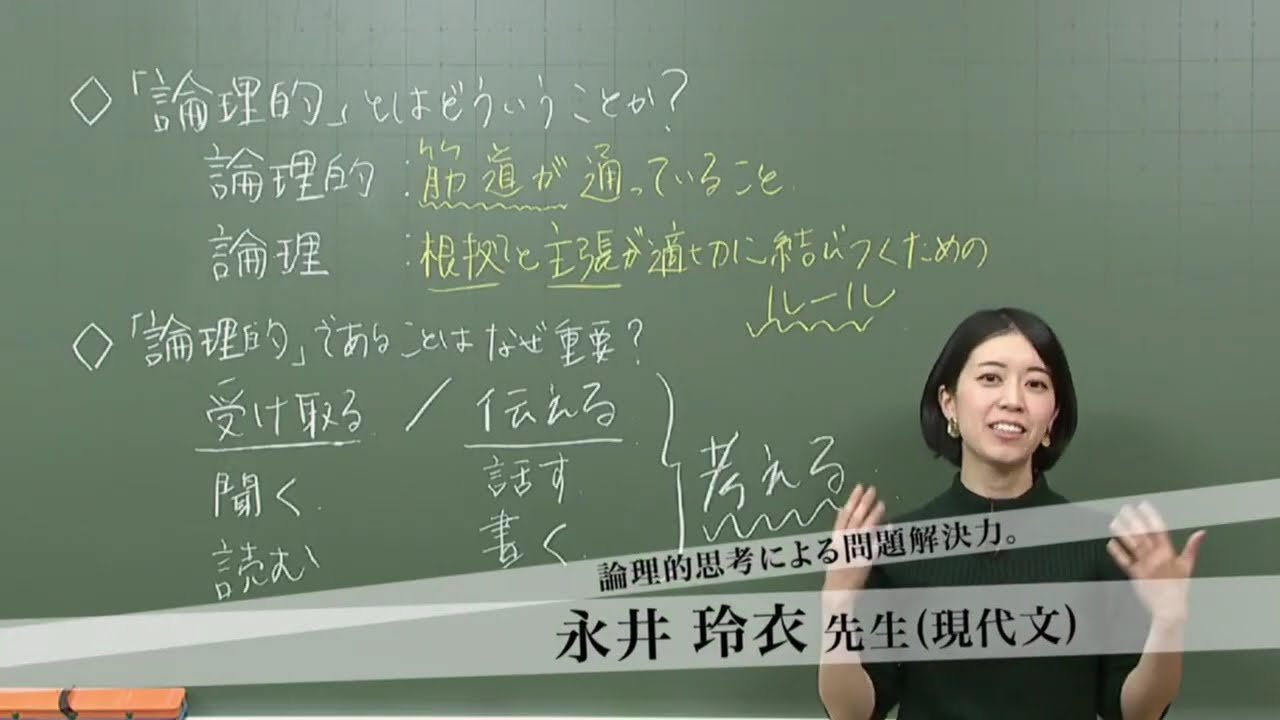 ◇「論理的」とはどういうことか？
論理的：筋道が通っていること
論理：根拠と主張が適切に結びつくための
ルール
◇「論理的」であることはなぜ重要？
受け取る / 伝える
聞く 話す
読む 書く
考える
論理的思考による問題解決力。
永井 玲衣 先生(現代文)